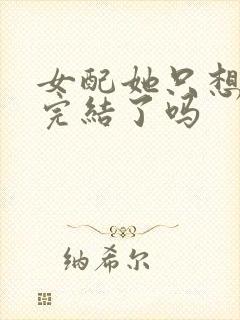 女配她只想
完结了吗
纳希尔